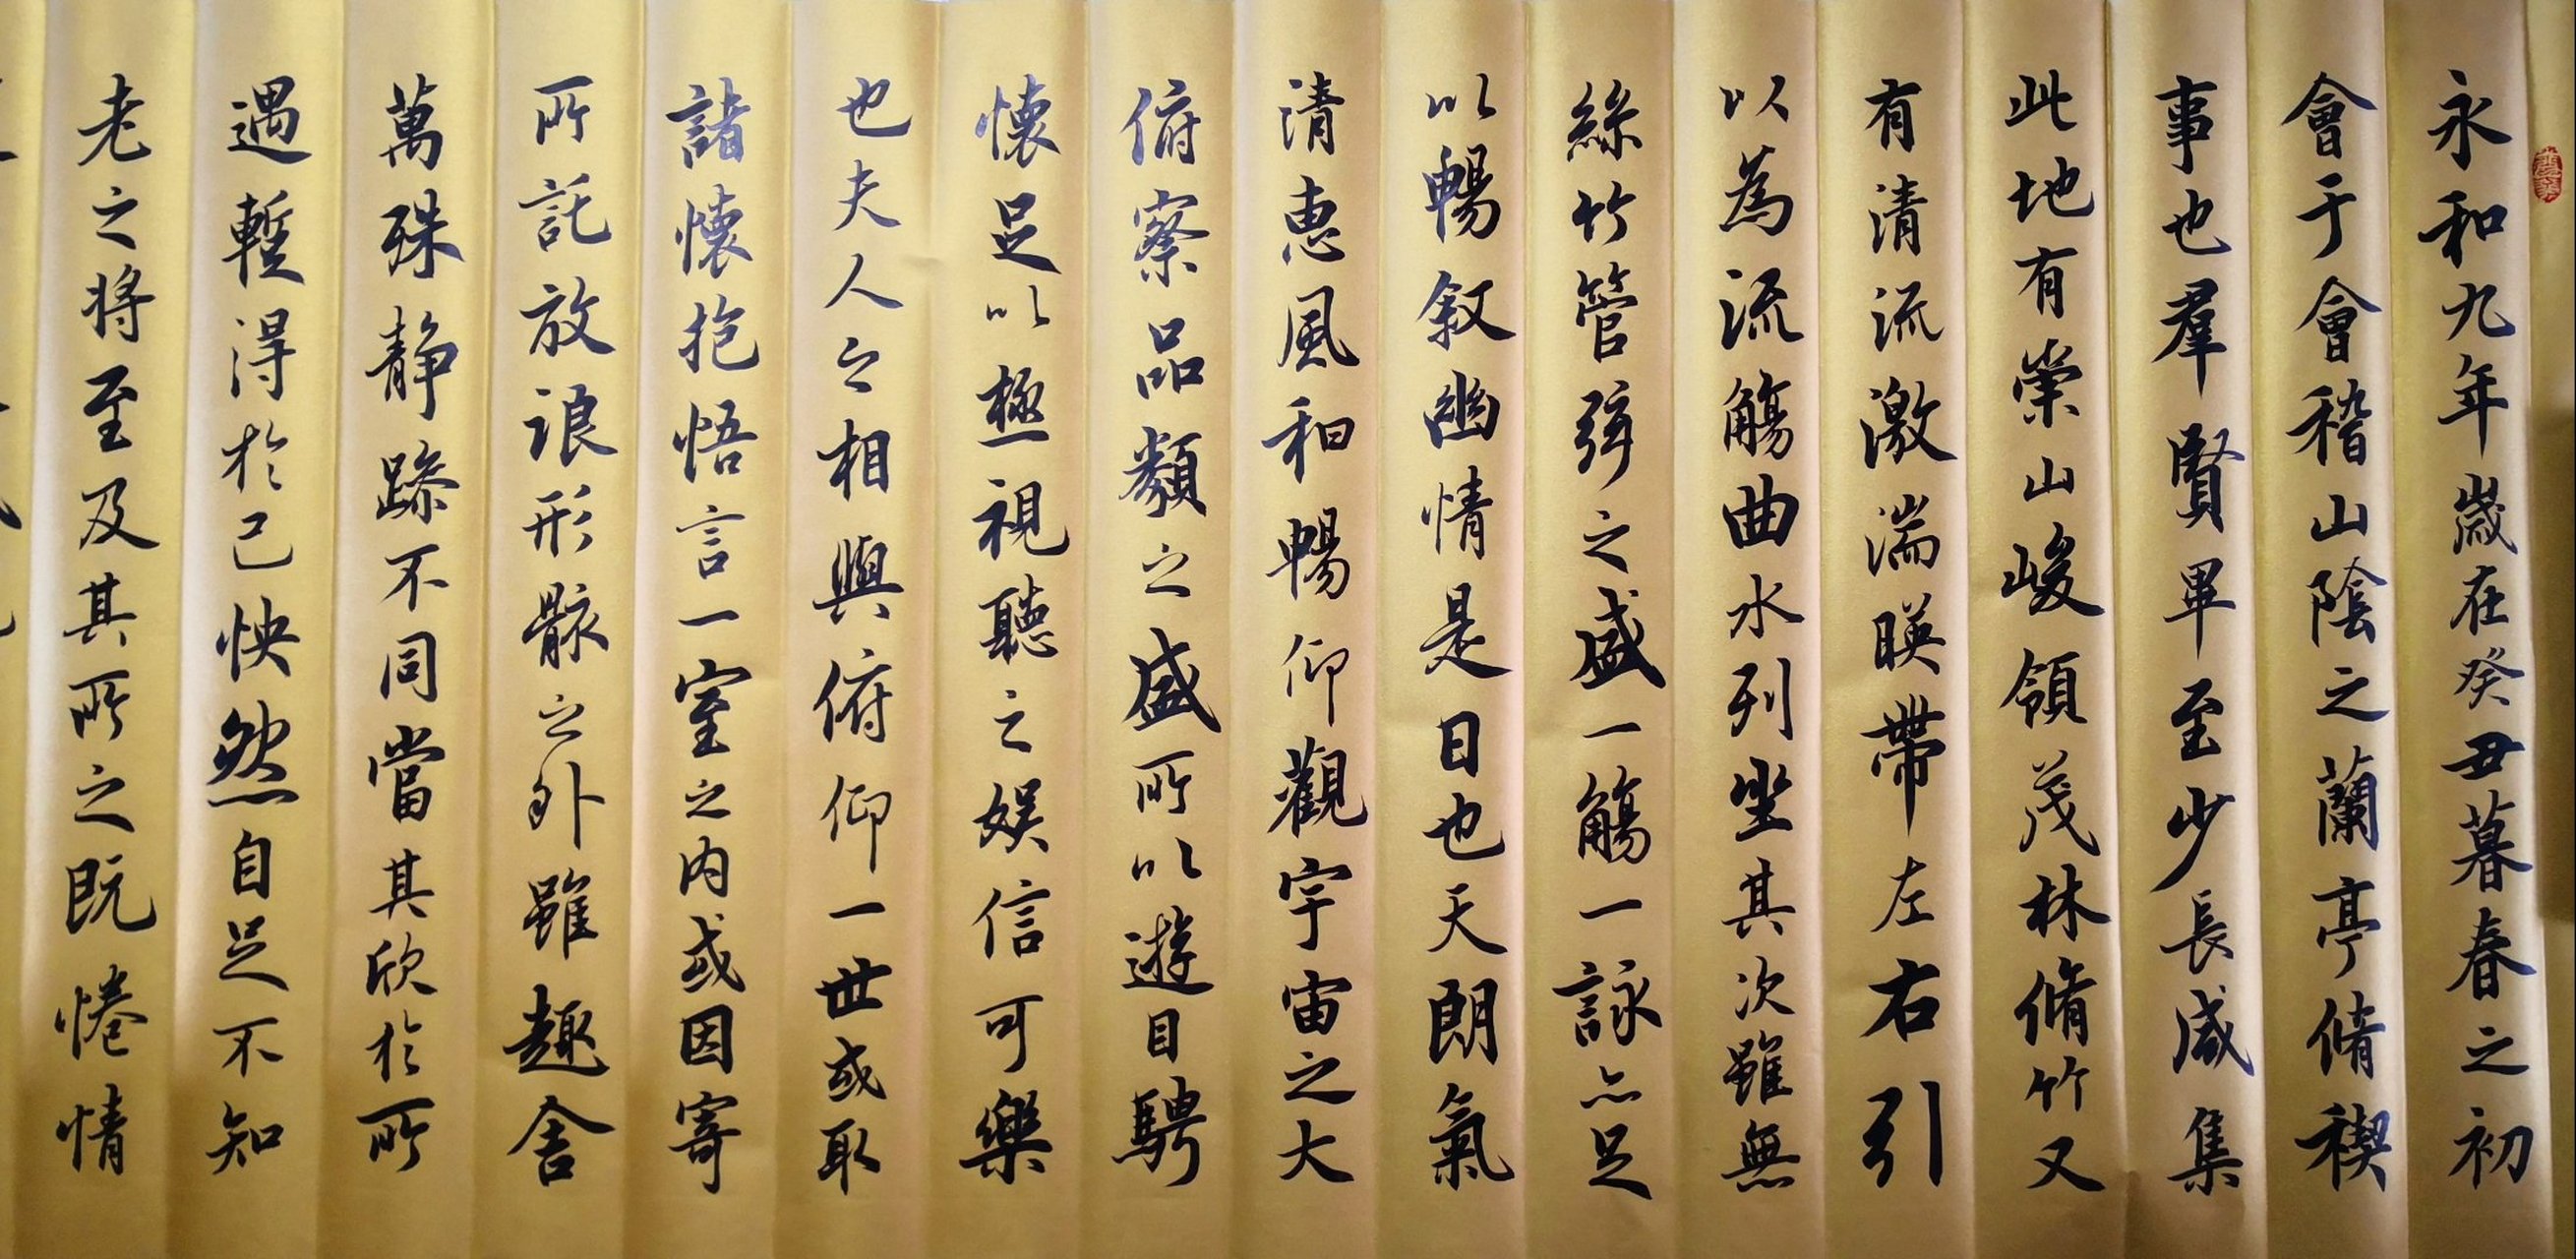 永和九年歲在癸丑暮春之初
會于會稽山陰之蘭亭脩禊
事也羣賢畢至少長咸集
此地有崇山峻領茂林脩竹又
有清流激湍暎帶左右引
以為流觴曲水列坐其次雖無
絲竹管弦之盛一觴一詠亦足
以暢敘幽情是日也天朗氣
清惠風和暢仰觀宇宙之大
俯察品類之盛所以遊目騁
懷足以極視聽之娛信可樂
也夫人之相與俯仰一世或取
諸懷抱悟言一室之內或因寄
所託放浪形骸之外雖趣舍
萬殊靜躁不同當其欣於所
遇蹔得於己怏然自足不知
老之將至及其所之既惓情